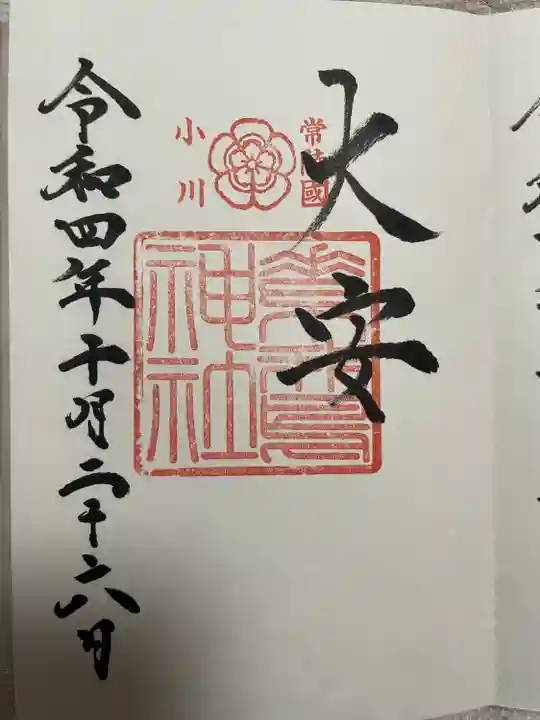 大安
常陸國
小川
素鵞
神社
令和四年十月二十六日